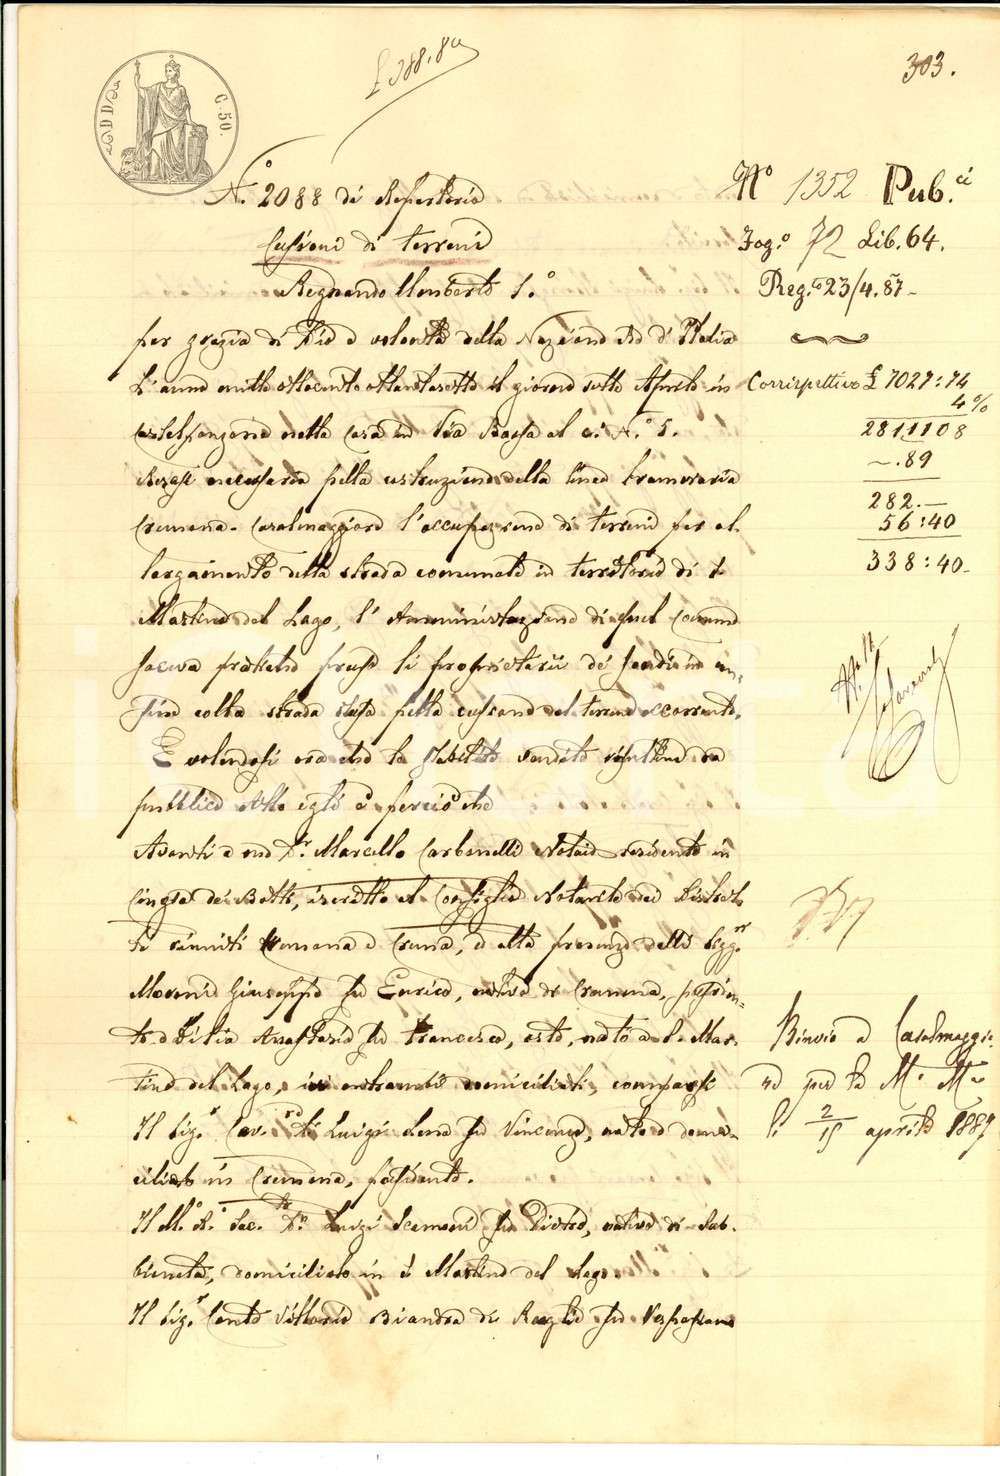 £ 388.80
303.
C. 50.
N.° 2088 di Repertorio
Cessioni di terreni
Regnando Umberto I.°
per grazia di Dio e volontà della Nazione Re d'Italia
L'anno mille ottocento ottantasette il giorno sette Aprile in
nella Casa in Via al c. N.° 5.
Resasi necessaria pella costruzione della linea tramviaria
Cremona-Casalmaggiore l'occupazione di terreni per al-
largamento della strada comunale in territorio di S.
Martino del Lago, l'Amministrazione di quel Comune
faceva pratiche presso li proprietarii dei fondi in con-
fine colla strada stessa pella cessione del terreno occorrente.
E volendosi ora che le stabilite vendite risultino da
pubblico atto egli è perciò che
Avanti a me D.r Marcello Carbonelli Notaio residente in
Cingia de' Botti, iscritto al Consiglio Notarile dei Distret-
ti riuniti Cremona e Crema, ed alla presenza delli Sigg.ri
Moroni Giuseppe fu Enrico, nativo di Cremona, possiden-
te e fu Francesco, oste, nato a S. Mar-
tino del Lago, ivi entrambi domiciliati, comparsi
Il Sig.r Cav. Luigi fu Vincenzo, nato e domi-
ciliato in Cremona, possidente.
Il M.° R.° Sac. D.n Luigi fu Pietro, nativo di Sab-
bioneta, domiciliato in S. Martino del Lago
Il Sig.r Conte Vittorio Biandra di Reaglie fu Vespasiano
N° 1352 Pub.ci
Fog.° 72 Lib. 64.
Reg.to 23/4.87-
Corrispettivo £ 7027:74
4%
2811108
-.89
282.-
56:40
338:40-
Rinvio a Casalmaggio-
re per le M. M.
li 2/15 aprile 1887